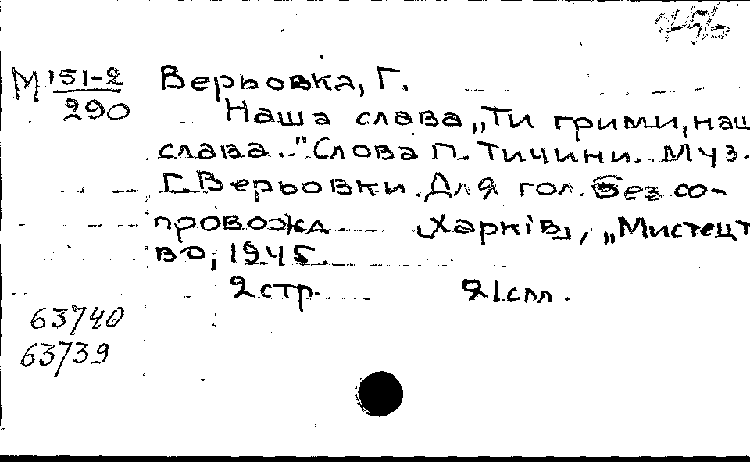 М 151-2
290
Верьовка, Г.
Наша слава „Ти грими, наш
слава.." Слова П. Тичини. Муз.
Г. Верьовки. Для гол. без со-
провожд [Харків], „Мистецт
во, 1945.
2 стр. 21 спл.
63740
63739